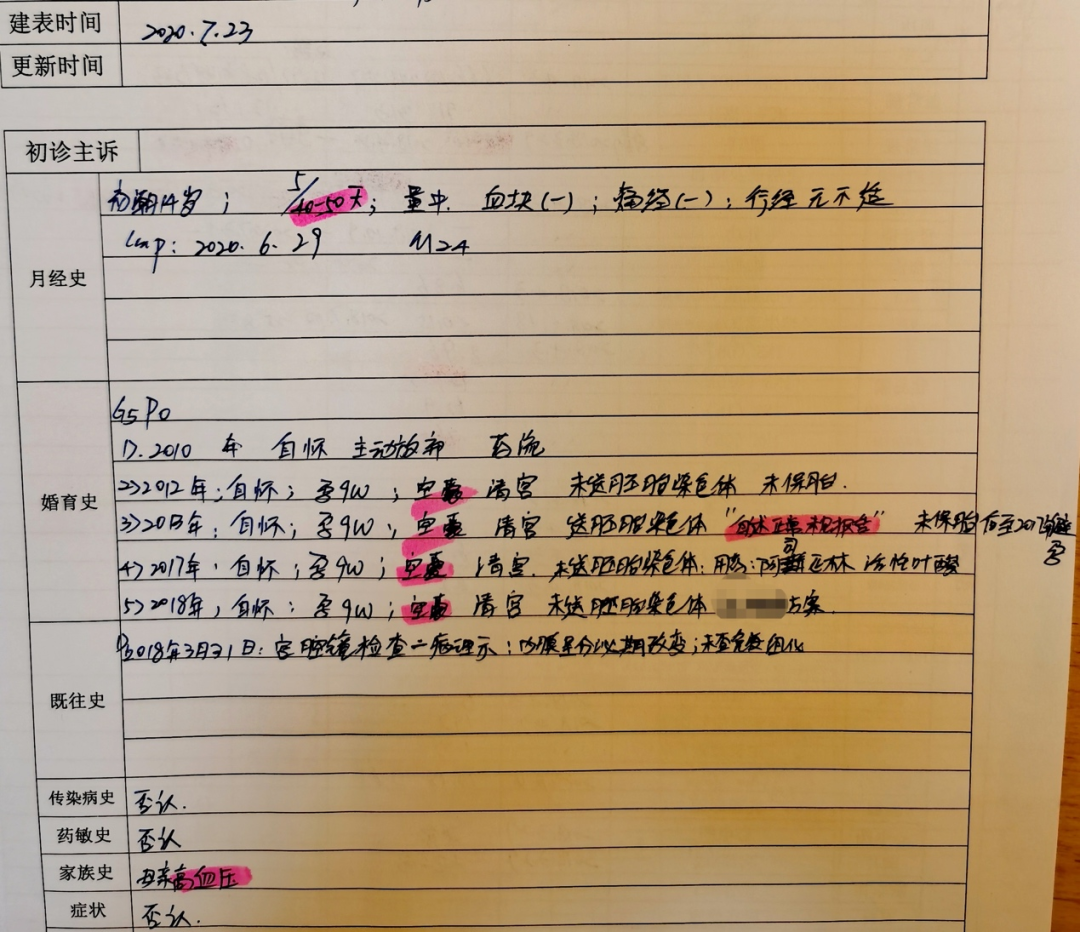 建表时间 2020.7.23
更新时间
初诊主诉
月经史
初潮14岁； 5/40-50天； 量中. 血块(-)；痛经(-)；行经无不适
Lmp: 2020. 6. 29 M24
婚育史
G5P0
1). 2010 年 自怀 主动放弃 药流
2)2012年；自怀；孕9W；空囊 清宫 未送胚胎染色体 未保胎.
3)2013年；自怀；孕9W；空囊 清宫 送胚胎染色体 "自述正常未见报告" 未保胎 后至2017年避孕
4)2017年，自怀；孕9W；空囊 清宫. 未送胚胎染色体；用药：阿司匹林 活性叶酸
5)2018年，自怀；孕9W；空囊 清宫 未送胚胎染色体 方案.
既往史
1)2018年3月31日：宫腔镜检查-病理示：内膜呈分泌期改变；未查免疫固化
传染病史 否认.
药敏史 否认
家族史 母亲高血压
症状 否认.